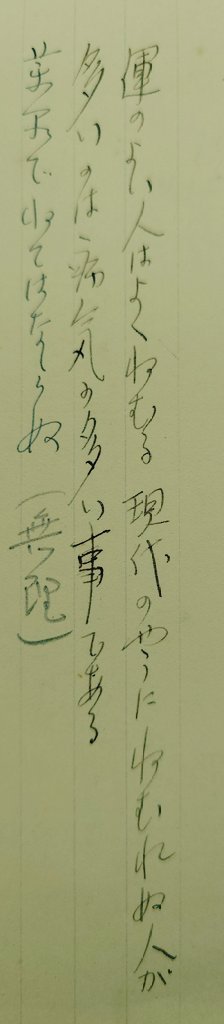 運のよい人はよくねむる 現代のやうにねむれぬ人が
多いのは病気の多い事である
薬でねてはならぬ
(無理)